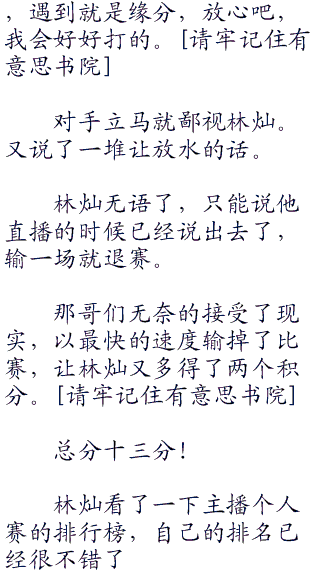 ，遇到就是缘分，放心吧，
我会好好打的。[请牢记住有
意思书院]
对手立马就鄙视林灿。
又说了一堆让放水的话。
林灿无语了，只能说他
直播的时候已经说出去了，
输一场就退赛。
那哥们无奈的接受了现
实，以最快的速度输掉了比
赛，让林灿又多得了两个积
分。[请牢记住有意思书院]
总分十三分！
林灿看了一下主播个人
赛的排行榜，自己的排名已
经很不错了